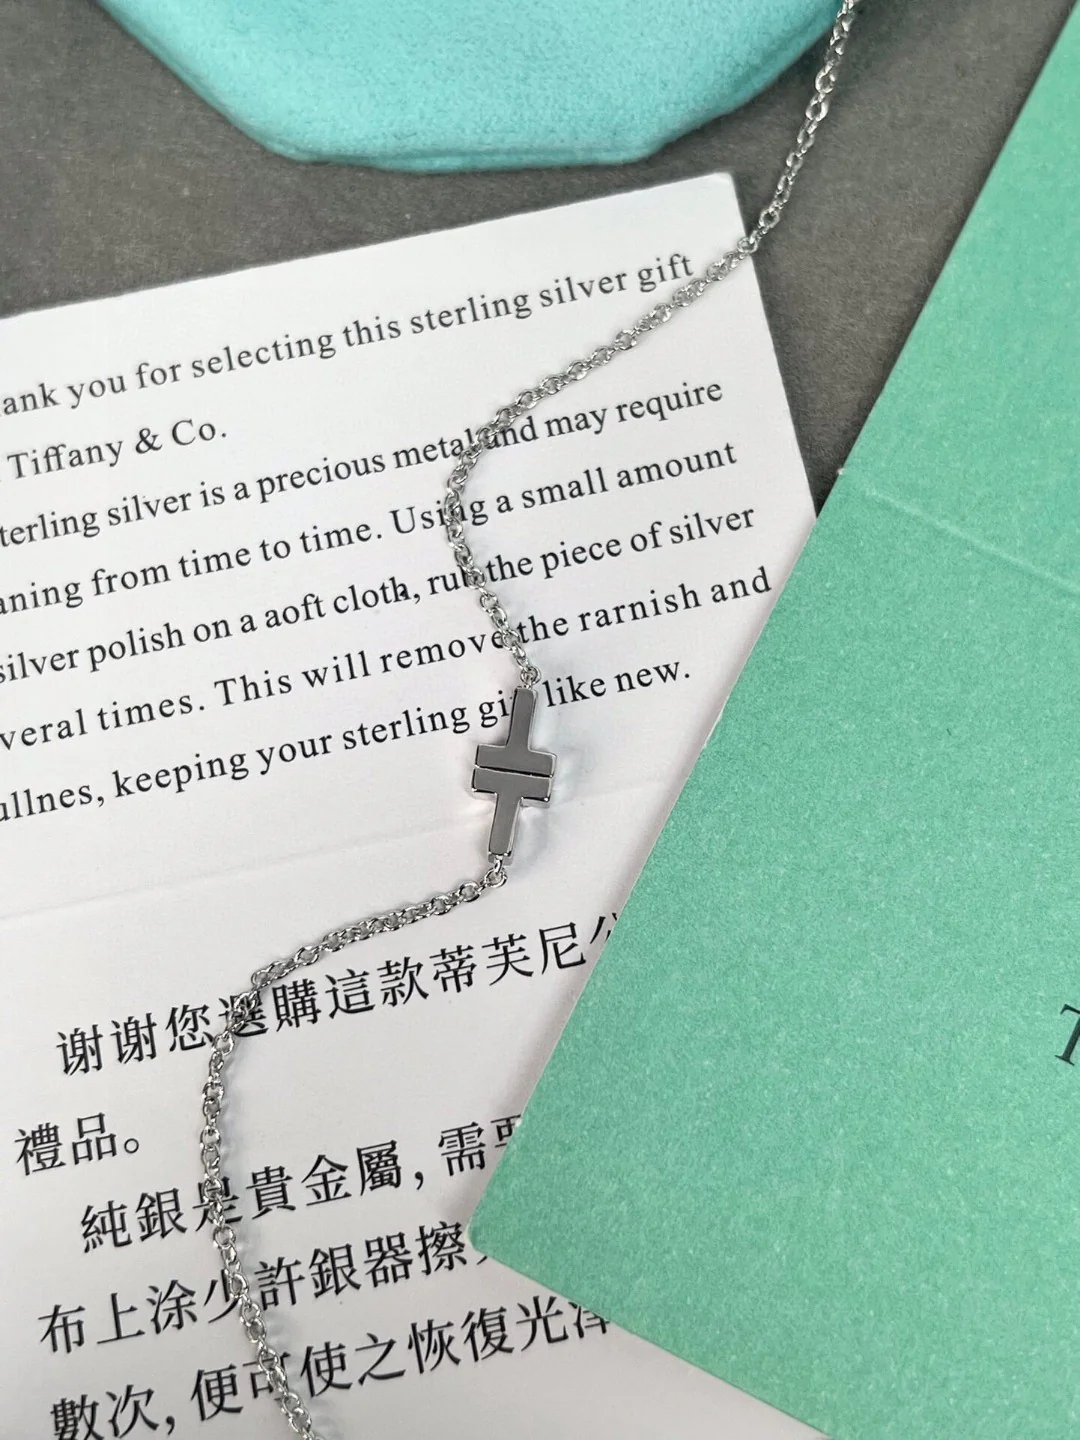 ank you for selecting this sterling silver gift
Tiffany & Co.
terling silver is a precious metal and may require
aning from time to time. Using a small amount
silver polish on a aoft cloth, rub the piece of silver
veral times. This will remove the rarnish and
ullnes, keeping your sterling gift like new.
谢谢您選購這款蒂芙尼公
禮品。
純銀是貴金屬,需要
布上涂少許銀器擦
數次,便可使之恢復光澤
T